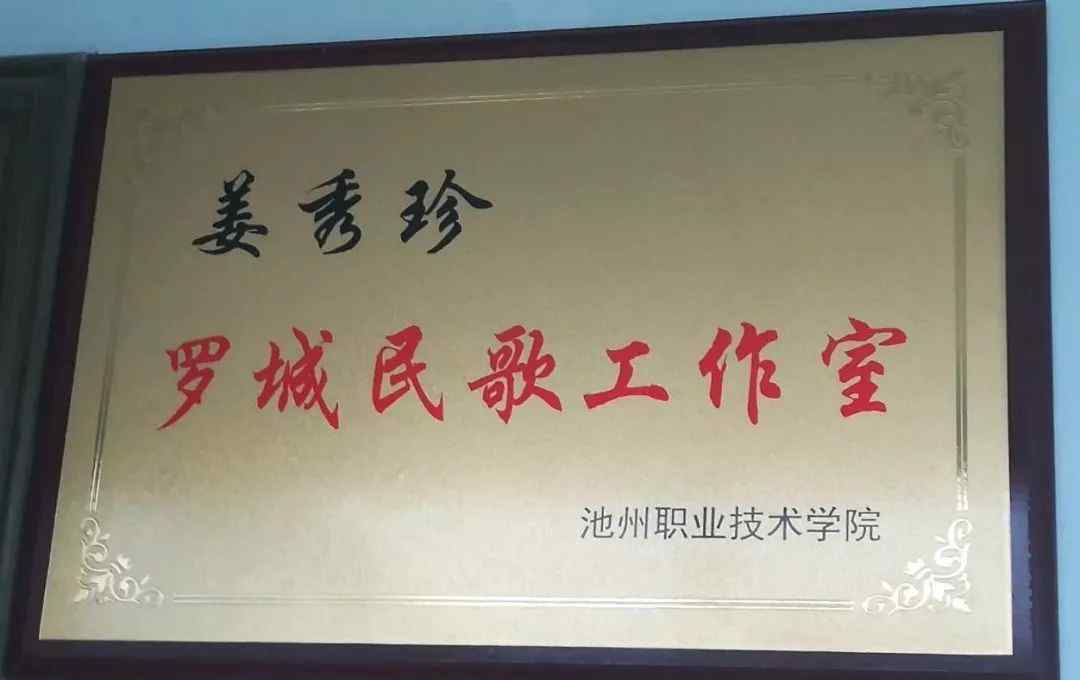 姜秀珍
罗城民歌工作室
池州职业技术学院